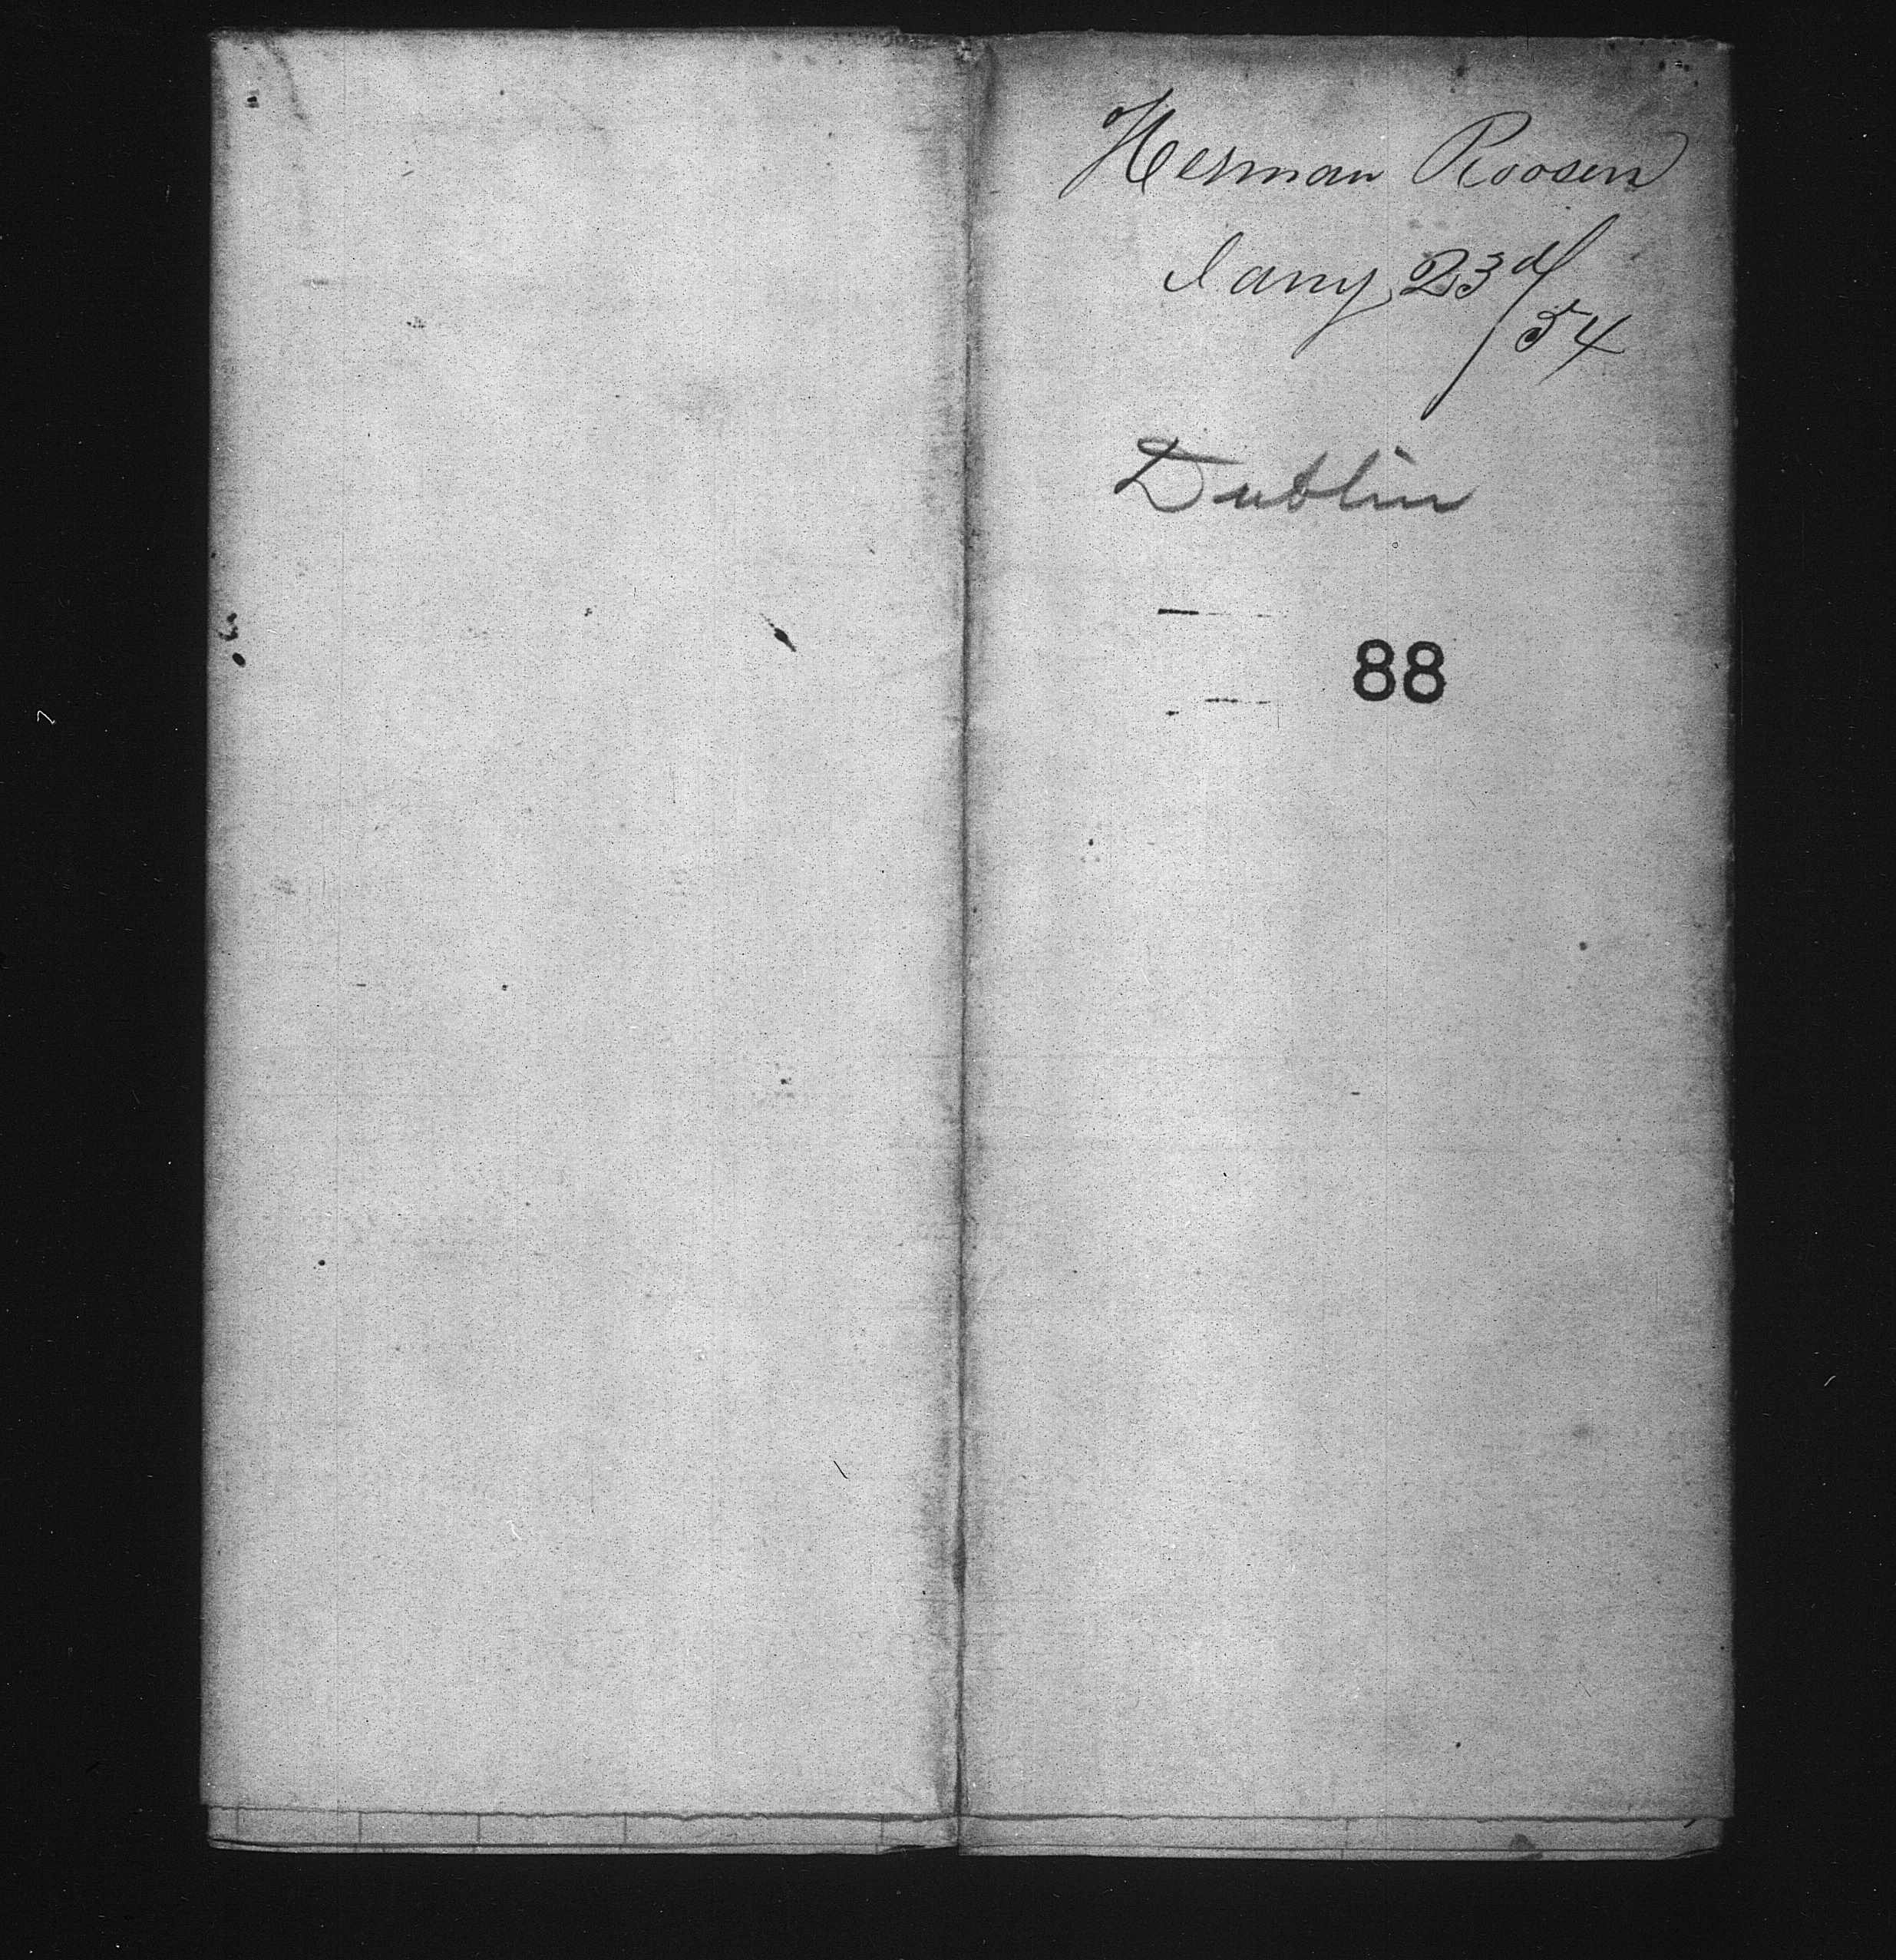 Herman Roosen
Jany 23d/54
Dublin
88